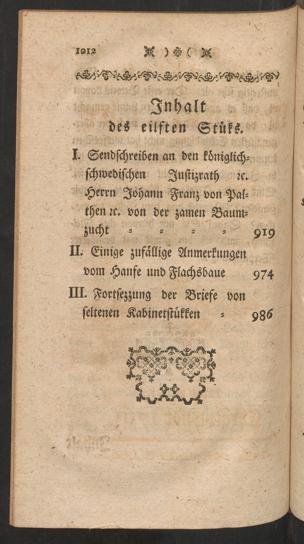 1012 ※ ) ※ ( ※
Inhalt
des eilften Stüks.
I. Sendschreiben an den königlich-
schwedischen Justizrath ꝛc.
Herrn Johann Franz von Pal-
then ꝛc. von der zamen Baum-
zucht = = = = 919
II. Einige zufällige Anmerkungen
vom Hanfe und Flachsbaue 974
III. Fortsezzung der Briefe von
seltenen Kabinetstükken = 986